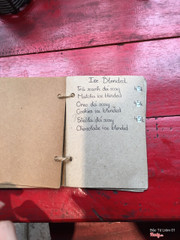 Ice Blended
Trà xanh đá xay
Matcha ice blended
Oreo đá xay
Cookies ice blended
Sôcôla đá xay
Chocolate ice blended